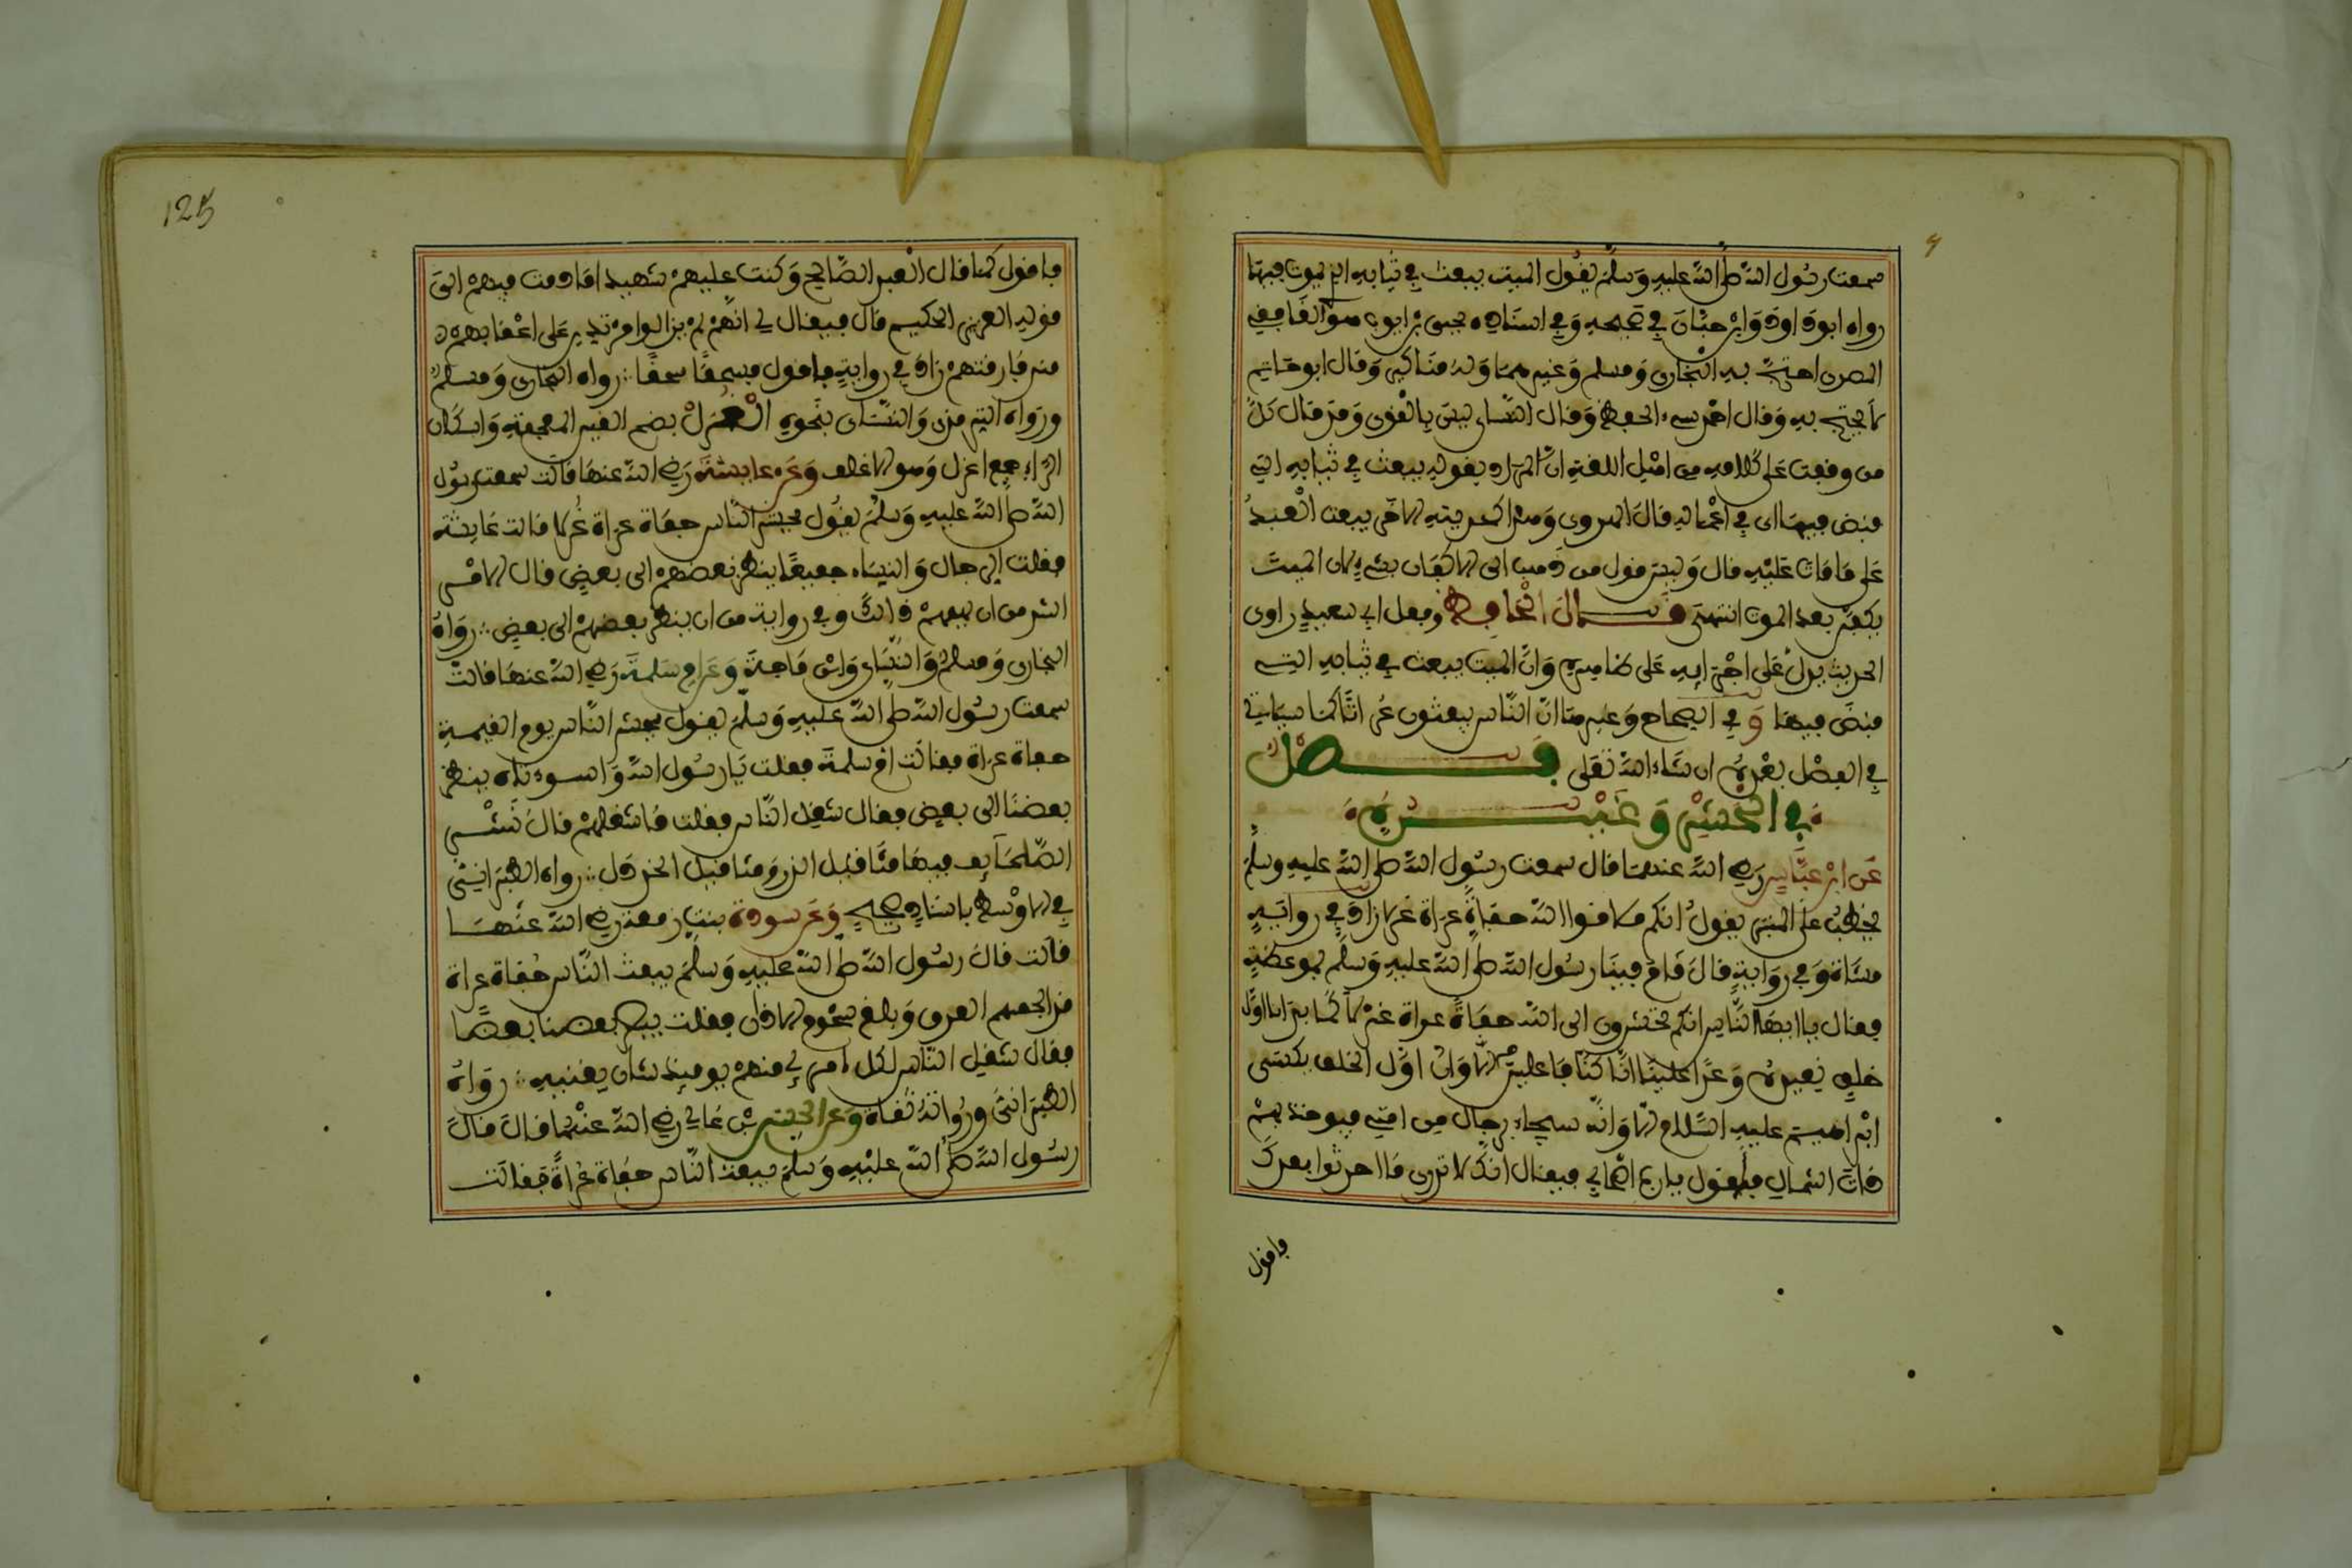 سمعت رسول الله صلى الله عليه وسلم يقول الميت يبعث في ثيابه التي يموت فيها
رواه ابو داود وابن حبان في صحيحه وفي اسناده يحيى بن ايوب هو الغافقي
المصري احتج به البخاري ومسلم وغيرهما وله مناكير وقال ابو حاتم
لا يحتج به وقال احمد سيء الحفظ وقال النسائي ليس بالقوي وقد قال كل
من وقفت على كلامه من اهل اللغة ان المراد بقوله يبعث في ثيابه التي
قبض فيها اي في اعماله قال الهروي وهذا كحديثه الاخر يبعث العبد
على ما مات عليه قال وليس قول من ذهب الى الاكفان بشيء لان الميت
يكفن بعد الموت انتهى قال الحافظ وفعل ابي سعيد راوي
الحديث يدل على اجرائه على ظاهره وان الميت يبعث في ثيابه التي
قبض فيها وفي الصحاح وغيرها ان الناس يبعثون عراة كما سياتي
في الفصل بعده ان شاء الله تعلى فصل
في الحشر وغيره
عن ابن عباس رضي الله عنهما قال سمعت رسول الله صلى الله عليه وسلم
يخطب على المنبر يقول انكم ملاقوا الله حفاة عراة غرلا زاد في رواية
مشاة وفي رواية قال قام فينا رسول الله صلى الله عليه وسلم بموعظة
فقال يا ايها الناس انكم محشرون الى الله حفاة عراة غرلا كما بدانا اول
خلق نعيده وعدا علينا انا كنا فاعلين الا وان اول الخلق يكسى
ابراهيم عليه السلام الا وانه سيجاء برجال من امتي فيوخذ بهم
ذات الشمال فاقول يا رب اصحابي فيقال انك لا تدري ما احدثوا بعدك
فاقول
125
فاقول كما قال العبد الصالح وكنت عليهم شهيدا ما دمت فيهم الى
قوله العزيز الحكيم قال فيقال لي انهم لم يزالوا مرتدين على اعقابهم
منذ فارقتهم زاد في رواية فاقول فسحقا سحقا رواه البخاري ومسلم
ورواه الترمذي والنسائي بنحوه الغرل بضم الغين المعجمة واسكان
الراء جمع اغرل وهو الاغلف وعن عايشة رضي الله عنها قالت سمعت رسول
الله صلى الله عليه وسلم يقول يحشر الناس حفاة عراة غرلا قالت عايشة
فقلت الرجال والنساء جميعا ينظر بعضهم الى بعض قال الامر
اشد من ان يهمهم ذالك وفي رواية من ان ينظر بعضهم الى بعض رواه
البخاري ومسلم والنسائي وابن ماجة وعن ام سلمة رضي الله عنها قالت
سمعت رسول الله صلى الله عليه وسلم يقول يحشر الناس يوم القيمة
حفاة عراة فقالت ام سلمة فقلت يا رسول الله واسوءتاه ينظر
بعضنا الى بعض فقال شغل الناس فقلت ما شغلهم قال نشر
الصحايف فيها مثاقيل الذر ومثاقيل الخردل رواه الطبراني
في الاوسط باسناد صحيح وعن سودة بنت زمعة رضي الله عنها
قالت قال رسول الله صلى الله عليه وسلم يبعث الناس حفاة عراة
قد الجمهم العرق وبلغ شحوم الاذان فقلت يبصر بعضنا بعضا
فقال شغل الناس لكل امرئ منهم يومئذ شان يغنيه رواه
الطبراني ورواته ثقاة وعن الحسن بن علي رضي الله عنهما قال قال
رسول الله صلى الله عليه وسلم يبعث الناس حفاة عراة فقالت